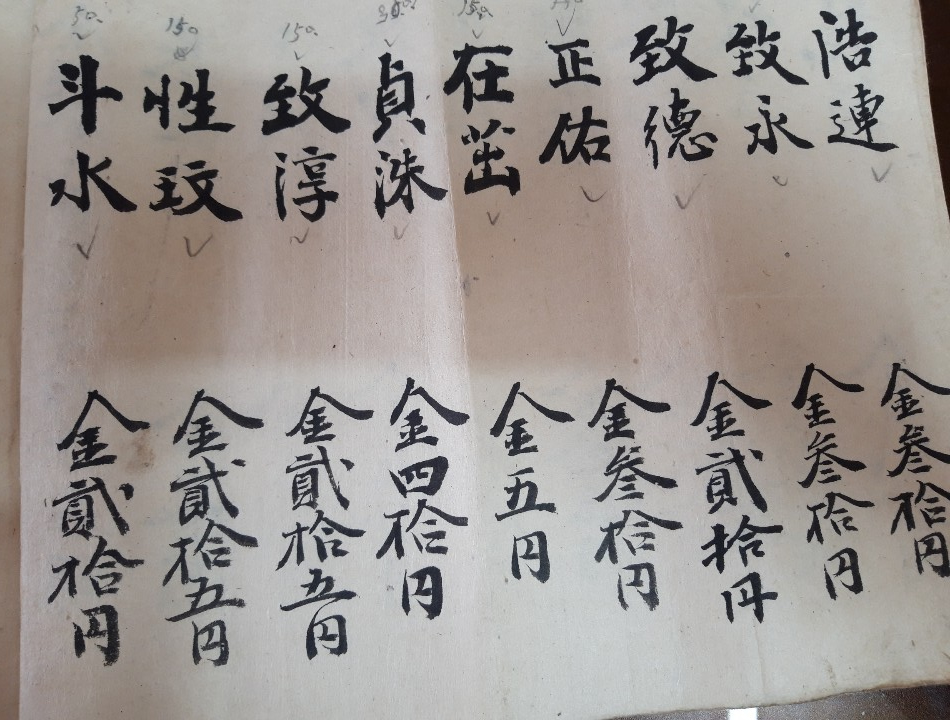 浩連
金叁拾円
致永
金叁拾円
致德
金貳拾円
正佑
金叁拾円
在茁
金五円
貞洙
金四拾円
致淳
150
金貳拾五円
性玟
150
金貳拾五円
斗水
50
金貳拾円